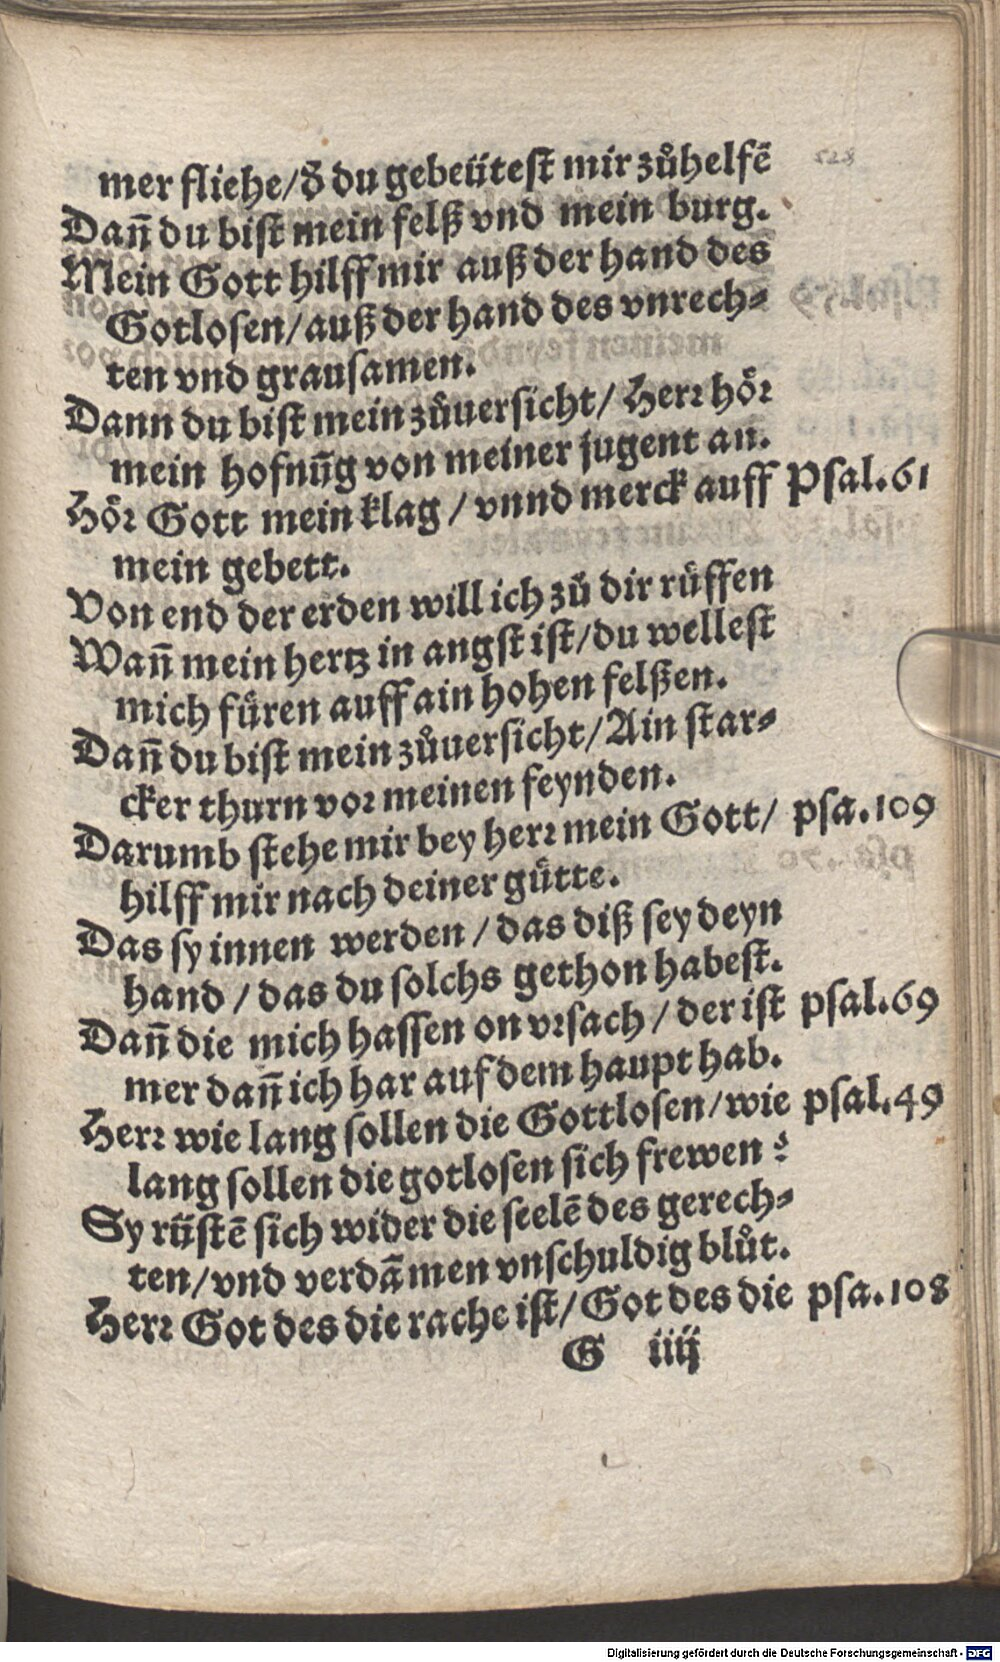 mer fliehe/ð du gebeütest mir zůhelfē
Dañ du bist mein felß vnd mein burg.
Mein Gott hilff mir auß der hand des
Gotlosen/auß der hand des vnrech⸗
ten vnd grausamen.
Dann du bist mein zůuersicht/ Herꝛ höꝛ
mein hofnūg von meiner jugent an.
Höꝛ Gott mein klag / vnnd merck auff Psal.61
mein gebett.
Von end der erden will ich zů dir rüffen
Wañ mein hertz in angst ist/du wellest
mich füren auff ain hohen felßen.
Dañ du bist mein zůuersicht/Ain star⸗
cker thurn voꝛ meinen feynden.
Darumb stehe mir bey herꝛ mein Gott/ psa.109
hilff mir nach deiner gütte.
Das sy innen werden / das diß sey deyn
hand / das du solchs gethon habest.
Dañ die mich hassen on vꝛsach / der ist psal.69
mer dañ ich har auf dem haupt hab.
Herꝛ wie lang sollen die Gottlosen/wie psal.49
lang sollen die gotlosen sich frewen ?
Sy rüstē sich wider die seelē des gerech⸗
ten/vnd verdāmen vnschuldig blůt.
Herꝛ Got des die rache ist/Got des die psa.108
G iiij
Digitalisierung gefördert durch die Deutsche Forschungsgemeinschaft - DFG